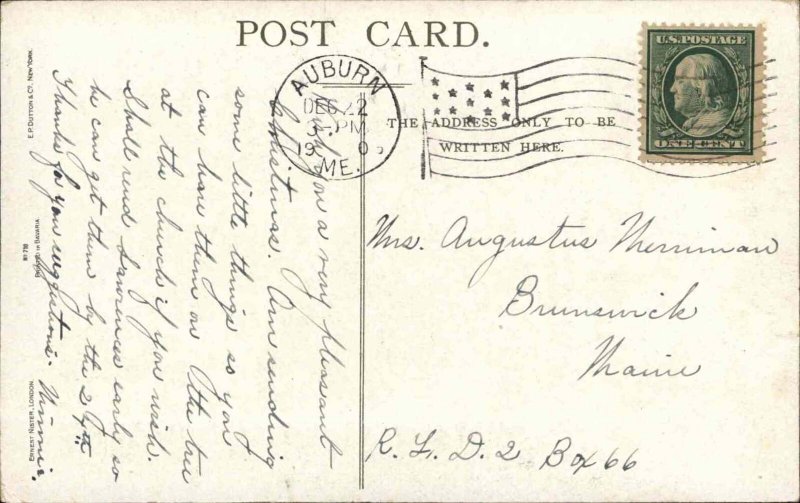 POST CARD.
THE ADDRESS ONLY TO BE
WRITTEN HERE.
AUBURN
DEC 22
PM
19 0
ME.
U.S. POSTAGE
ONE CENT
Mrs. Augustus Merriman
Brunswick
Maine
R. F. D. 2 Box 66
Wish you a very pleasant
Christmas. Am sending
some little things so you
can have them on the tree
at the church if you wish.
Shall send Lawrences early so
he can get them by the 24th
Thanks for your suggestions. Minnie.
E.P. DUTTON & CO. NEW YORK
PRINTED IN BAVARIA
ERNEST NISTER, LONDON.